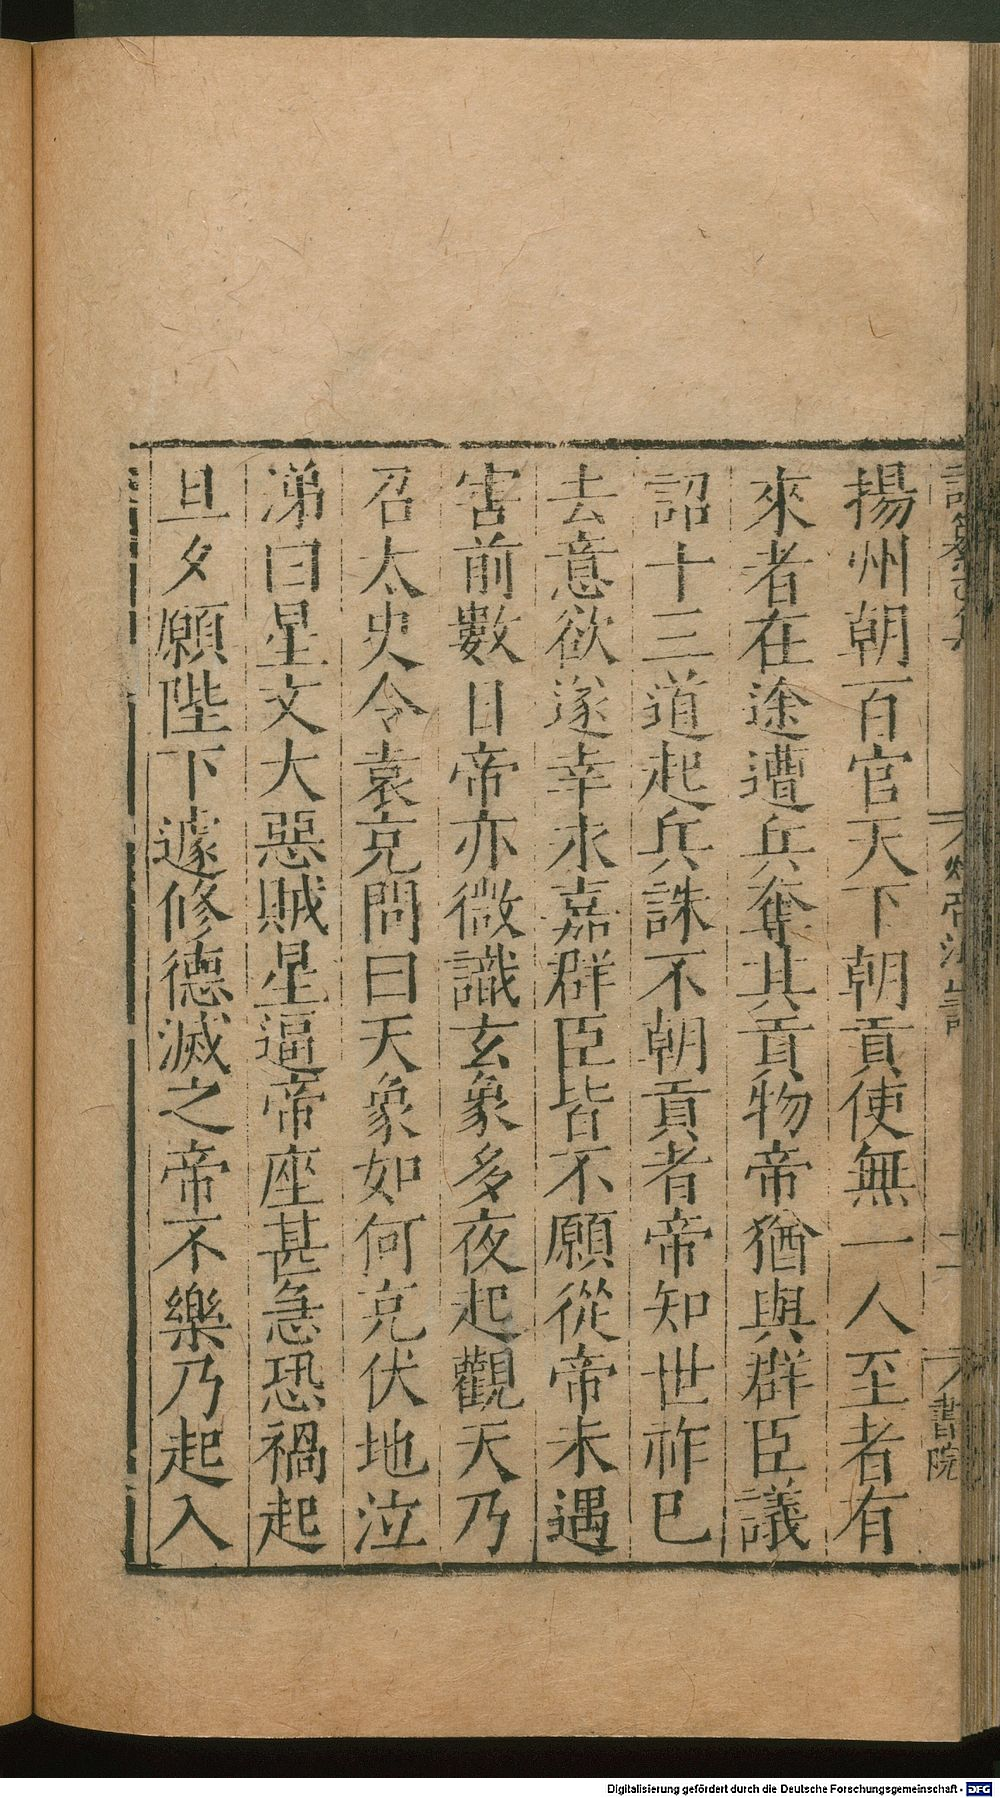 揚州朝百官天下朝貢使無一人至者有
來者在途遭兵奪其貢物帝猶與群臣議
詔十三道起兵誅不朝貢者帝知世祚已
去意欲遂幸永嘉群臣皆不願從帝未遇
害前數日帝亦微識玄象多夜起觀天乃
召太史令袁充問曰天象如何充伏地泣
涕曰星文大惡賊星逼帝座甚急恐禍起
旦夕願陛下遽修德滅之帝不樂乃起入
書院
Digitalisierung gefördert durch die Deutsche Forschungsgemeinschaft - DFG